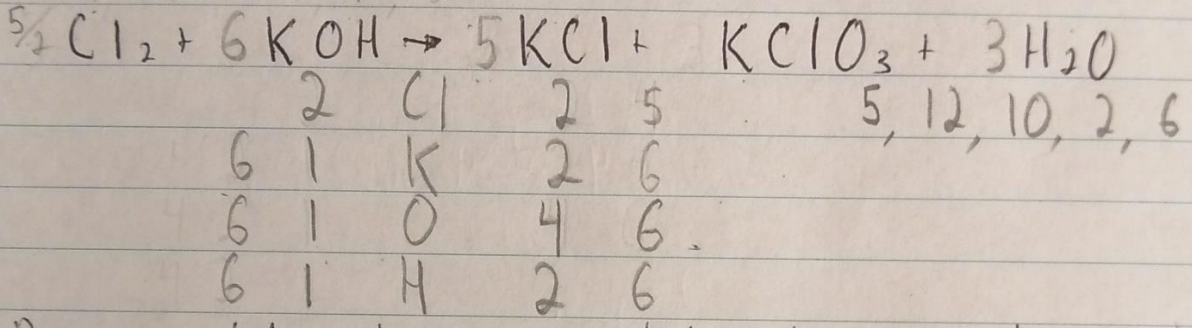 5/2 Cl₂ + 6 KOH → 5 KCl + KClO₃ + 3 H₂O
2 Cl 2 5 5, 12, 10, 2, 6
6 1 K 2 6
6 1 O 4 6
6 1 H 2 6